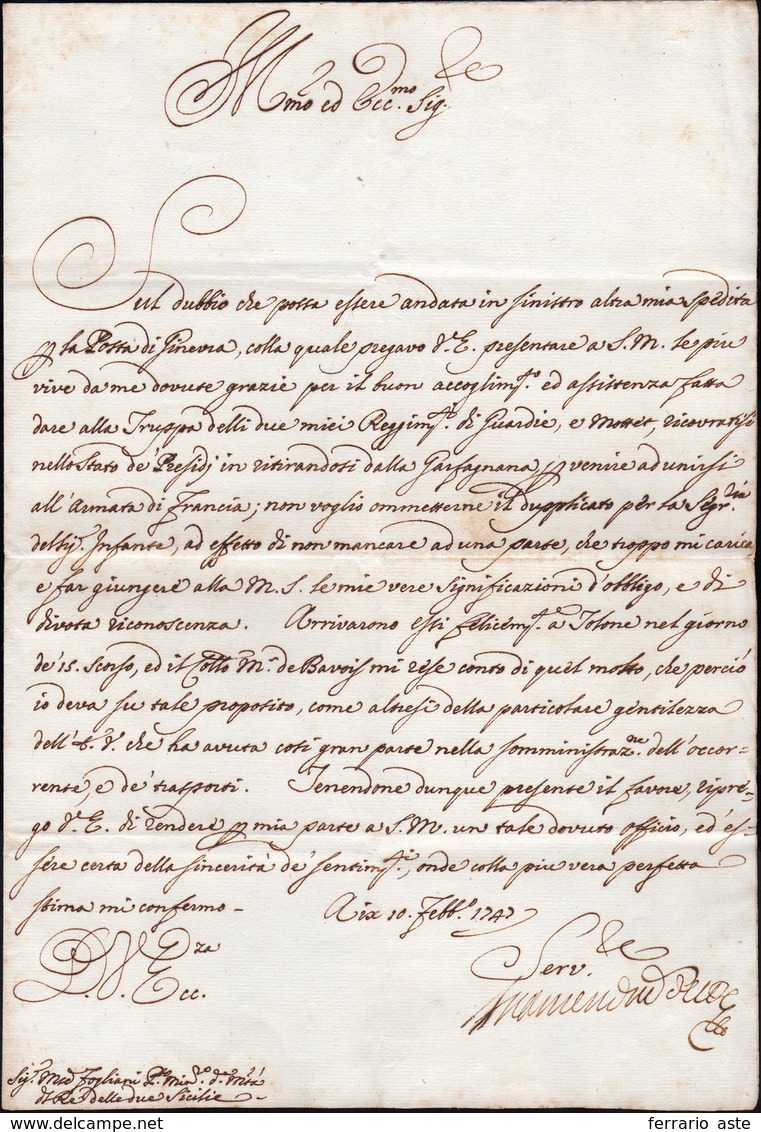 Illmo ed Ecc.mo Sig.re
Sul dubbio che possa essere andata in sinistro altra mia spedita
p la Posta di Ginevra, colla quale pregavo V. E. presentare a S. M. le più
vive da me dovute grazie per il buon accoglim.to ed assistenza fatta
dare alla Truppa delli due miei Reggim.ti di Guardie, e Mottet, ricovratisi
nello Stato de' Presidj in ritirandosi dalla Garfagnana p venire ad unirsi
all'Armata di Francia; non voglio ommetterne il dupplicato per la Segr.ria
del Sig.r Infante, ad effetto di non mancare ad una parte, che troppo mi carica,
e far giungere alla M. S. le mie vere significazioni d'obbligo, e di
divota riconoscenza. Arrivarono essi felicem.te a Tolone nel giorno
de' 15. scorso, ed il Collo M.r de Bavois mi rese conto di quel molto, che perciò
io deva su tale proposito, come altresì della particolare gentilezza
dell' E. V. che ha avuta così gran parte nella somministraz.ne dell'occor=
rente, e de' trasporti. Tenendone dunque presente il favore, ripre=
go V. E. di rendere p mia parte a S. M. un tale dovuto officio, ed es=
sere certa della sincerità de' sentim.ti, onde colla più vera perfetta
stima mi confermo - Aix 10. Febb.o 1747
D. V. Ecc.za
Serv.re
Sig.r Mse Fogliani P.o Min.ro di S. Mtà
il Re delle due Sicilie -
ferrario aste
www.delcampe.net